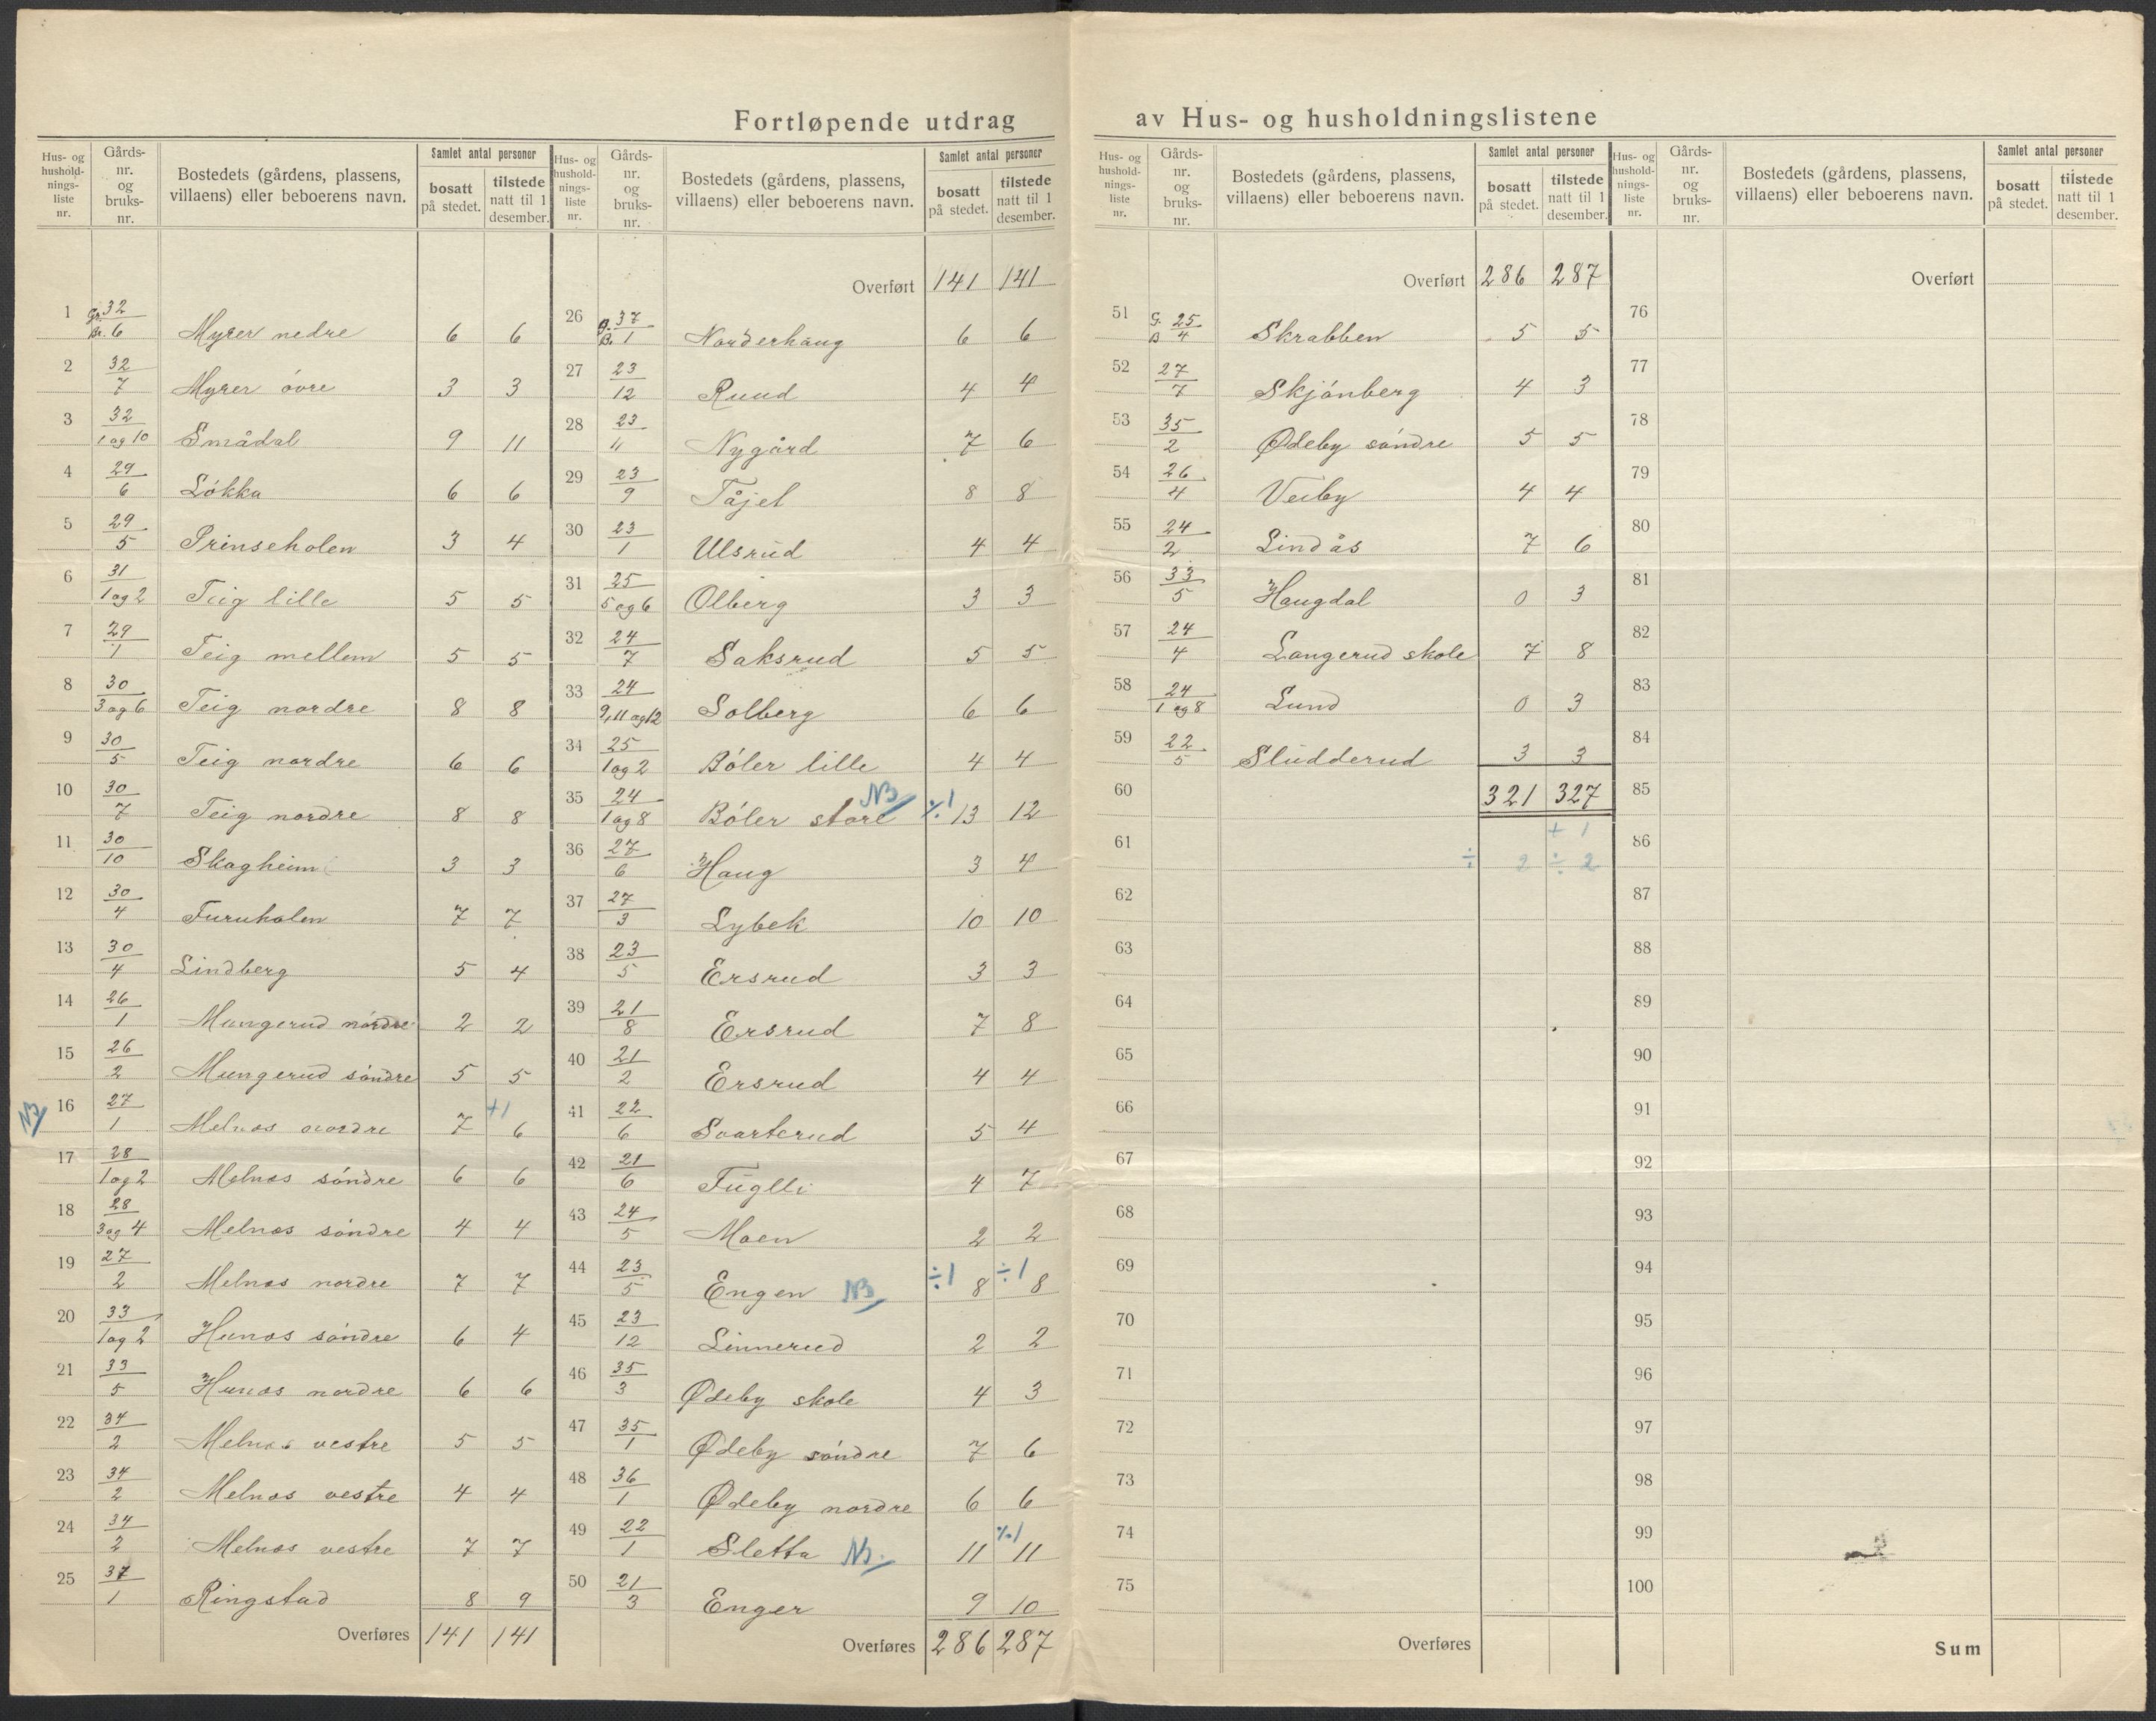 Fortløpende utdrag av Hus- og husholdningslistene
Hus- og hushold-nings-liste nr. | Gårds-nr. og bruks-nr. | Bostedets (gårdens, plassens, villaens) eller beboerens navn. | Samlet antal personer | bosatt på stedet. | tilstede natt til 1 desember.
1 Gr. 32 Br. 6 Myrer nedre 6 6
2 32/7 Myrer övre 3 3
3 32/1 og 10 Smådal 9 11
4 29/6 Lökka 6 6
5 29/5 Prinseholen 3 4
6 31/1 og 2 Teig lille 5 5
7 29/1 Teig mellem 5 5
8 30/3 og 6 Teig nordre 8 8
9 30/5 Teig nordre 6 6
10 30/7 Teig nordre 8 8
11 30/10 Skogheim 3 3
12 30/4 Furuholen 7 7
13 30/4 Lindberg 5 4
14 26/1 Mungerud nordre 2 2
15 26/2 Mungerud söndre 5 5
NB 16 27/1 Melnæs nordre 7 +1 6
17 28/1 og 2 Melnæs söndre 6 6
18 28/3 og 4 Melnæs söndre 4 4
19 27/2 Melnæs nordre 7 7
20 33/1 og 2 Hunæs söndre 6 4
21 33/5 Hunæs nordre 6 6
22 34/2 Melnæs vestre 5 5
23 34/2 Melnæs vestre 4 4
24 34/2 Melnæs vestre 7 7
25 37/1 Ringstad 8 9
Overføres 141 141
Hus- og hushold-nings-liste nr. | Gårds-nr. og bruks-nr. | Bostedets (gårdens, plassens, villaens) eller beboerens navn. | Samlet antal personer | bosatt på stedet. | tilstede natt til 1 desember.
Overført 141 141
26 G. 37 B. 1 Norderhaug 6 6
27 23/12 Ruud 4 4
28 23/11 Nygård 7 6
29 23/9 Tåjet 8 8
30 23/1 Ulsrud 4 4
31 25/5 og 6 Olberg 3 3
32 24/7 Saksrud 5 5
33 24/9, 11 og 12 Solberg 6 6
34 25/1 og 2 Böler lille 4 4
35 24/1 og 8 Böler store NB ⁒ 1 13 12
36 27/6 Haug 3 4
37 27/3 Lybek 10 10
38 23/5 Ersrud 3 3
39 21/8 Ersrud 7 8
40 21/2 Ersrud 4 4
41 22/6 Svarterud 5 4
42 21/6 Fuglli 4 7
43 24/5 Moen 2 2
44 23/5 Engen NB ÷1 8 ÷1 8
45 23/12 Linnerud 2 2
46 35/3 Ødeby skole 4 3
47 35/1 Ødeby söndre 7 6
48 36/1 Ødeby nordre 6 6
49 22/1 Sletta NB. 11 ⁒1 11
50 21/3 Enger 9 10
Overføres 286 287
Hus- og hushold-nings-liste nr. | Gårds-nr. og bruks-nr. | Bostedets (gårdens, plassens, villaens) eller beboerens navn. | Samlet antal personer | bosatt på stedet. | tilstede natt til 1 desember.
Overført 286 287
51 G. 25 B 4 Skrabben 5 5
52 27/7 Skjönberg 4 3
53 35/2 Ødeby söndre 5 5
54 26/4 Veiby 4 4
55 24/2 Lindås 7 6
56 33/5 Haugdal 0 3
57 24/4 Langerud skole 7 8
58 24/1 og 8 Lund 0 3
59 22/5 Sludderud 3 3
60 321 327
+ 1
61 ÷ 2 ÷ 2
62
63
64
65
66
67
68
69
70
71
72
73
74
75
Overføres
Hus- og hushold-nings-liste nr. | Gårds-nr. og bruks-nr. | Bostedets (gårdens, plassens, villaens) eller beboerens navn. | Samlet antal personer | bosatt på stedet. | tilstede natt til 1 desember.
Overført
76
77
78
79
80
81
82
83
84
85
86
87
88
89
90
91
92
93
94
95
96
97
98
99
100
Sum